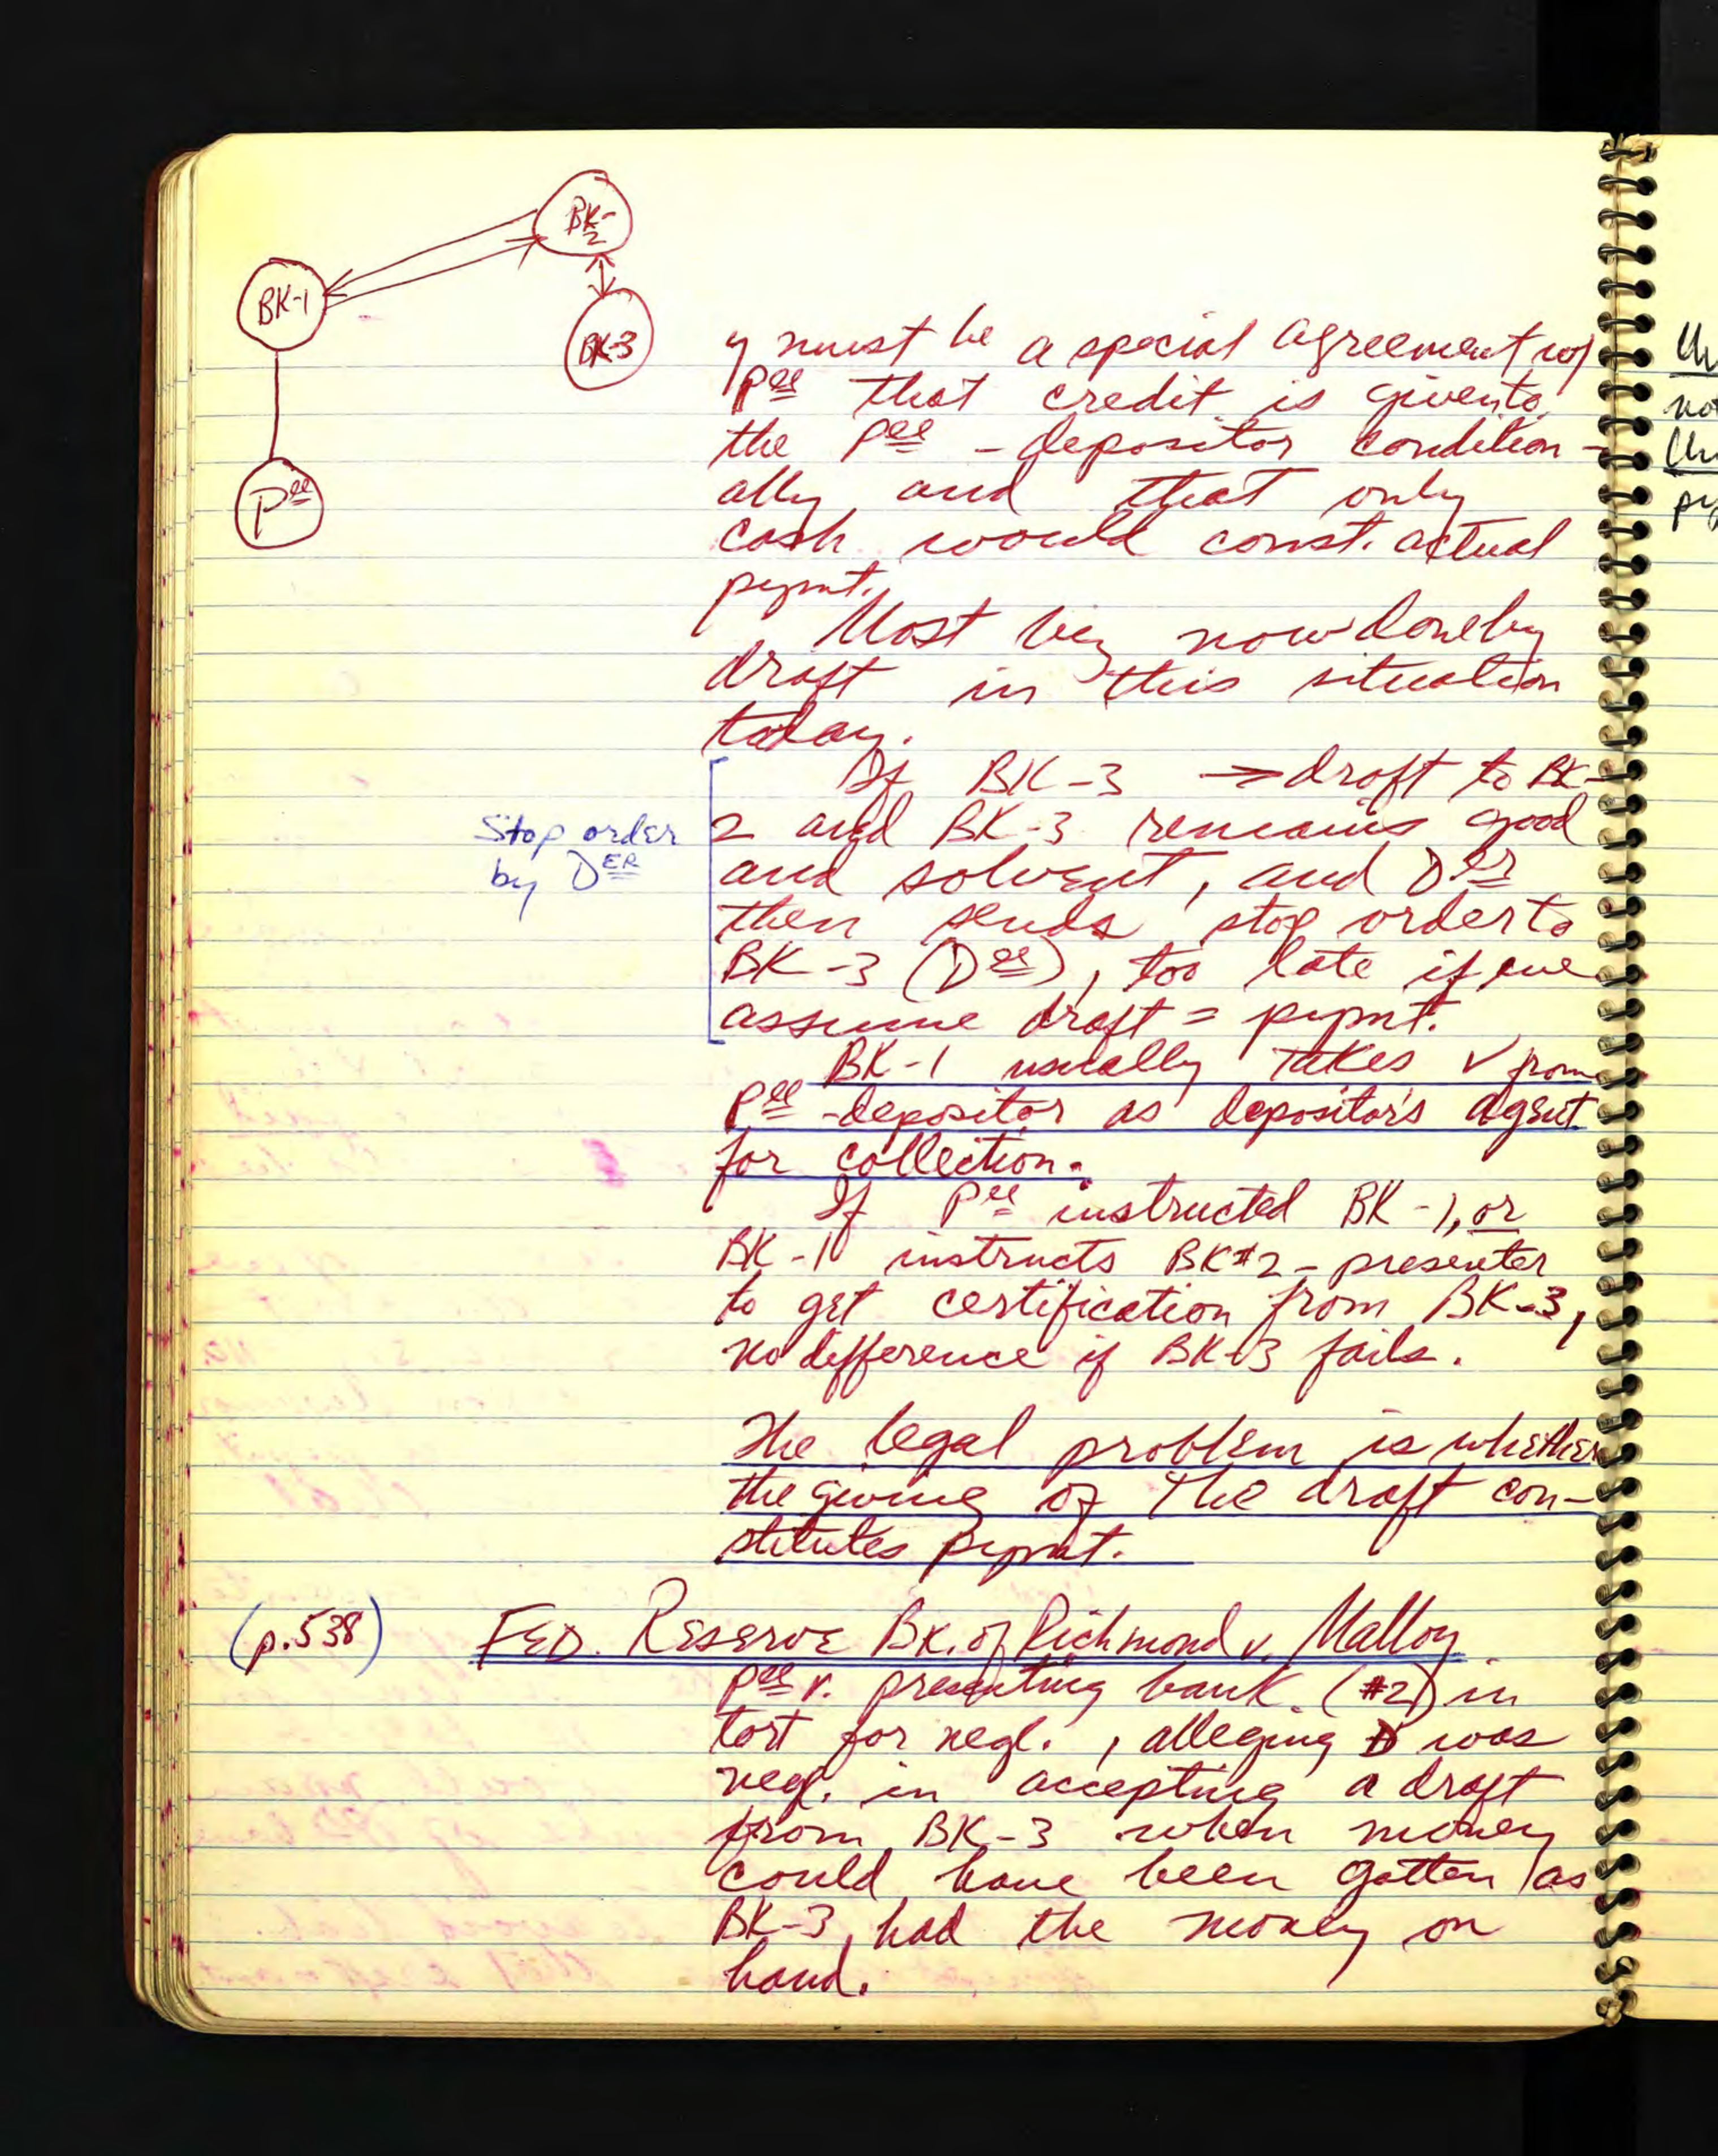 BK-2
BK-1
BK-3
Pee
y must be a special agreement w/
Pee that credit is given to
the Pee - depositor condition-
ally and that only
cash would const. actual
pymnt.
Most
now done by
draft in this situation
today.
If BK-3 → draft to BK-
2 and BK-3 remains good
and solvent, and Der
then sends stop order to
BK-3 (Dee), too late if we
assume draft = pymnt.
Stop order
by DER
BK-1 usually takes ✓ from
Pee-depositor as depositor's agent
for collection.
If Pee instructed BK-1, or
BK-1 instructs BK#2-presenter
to get certification from BK-3,
no difference if BK-3 fails.
The legal problem is whether
the giving of the draft con-
stitutes pymnt.
(p.538) FED. RESERVE BK. of Richmond v. Malloy
Pee v. presenting bank (#2) in
tort for negl., alleging D was
negl. in accepting a draft
from BK-3 when money
could have been gotten as
BK-3 had the money on
hand.
not